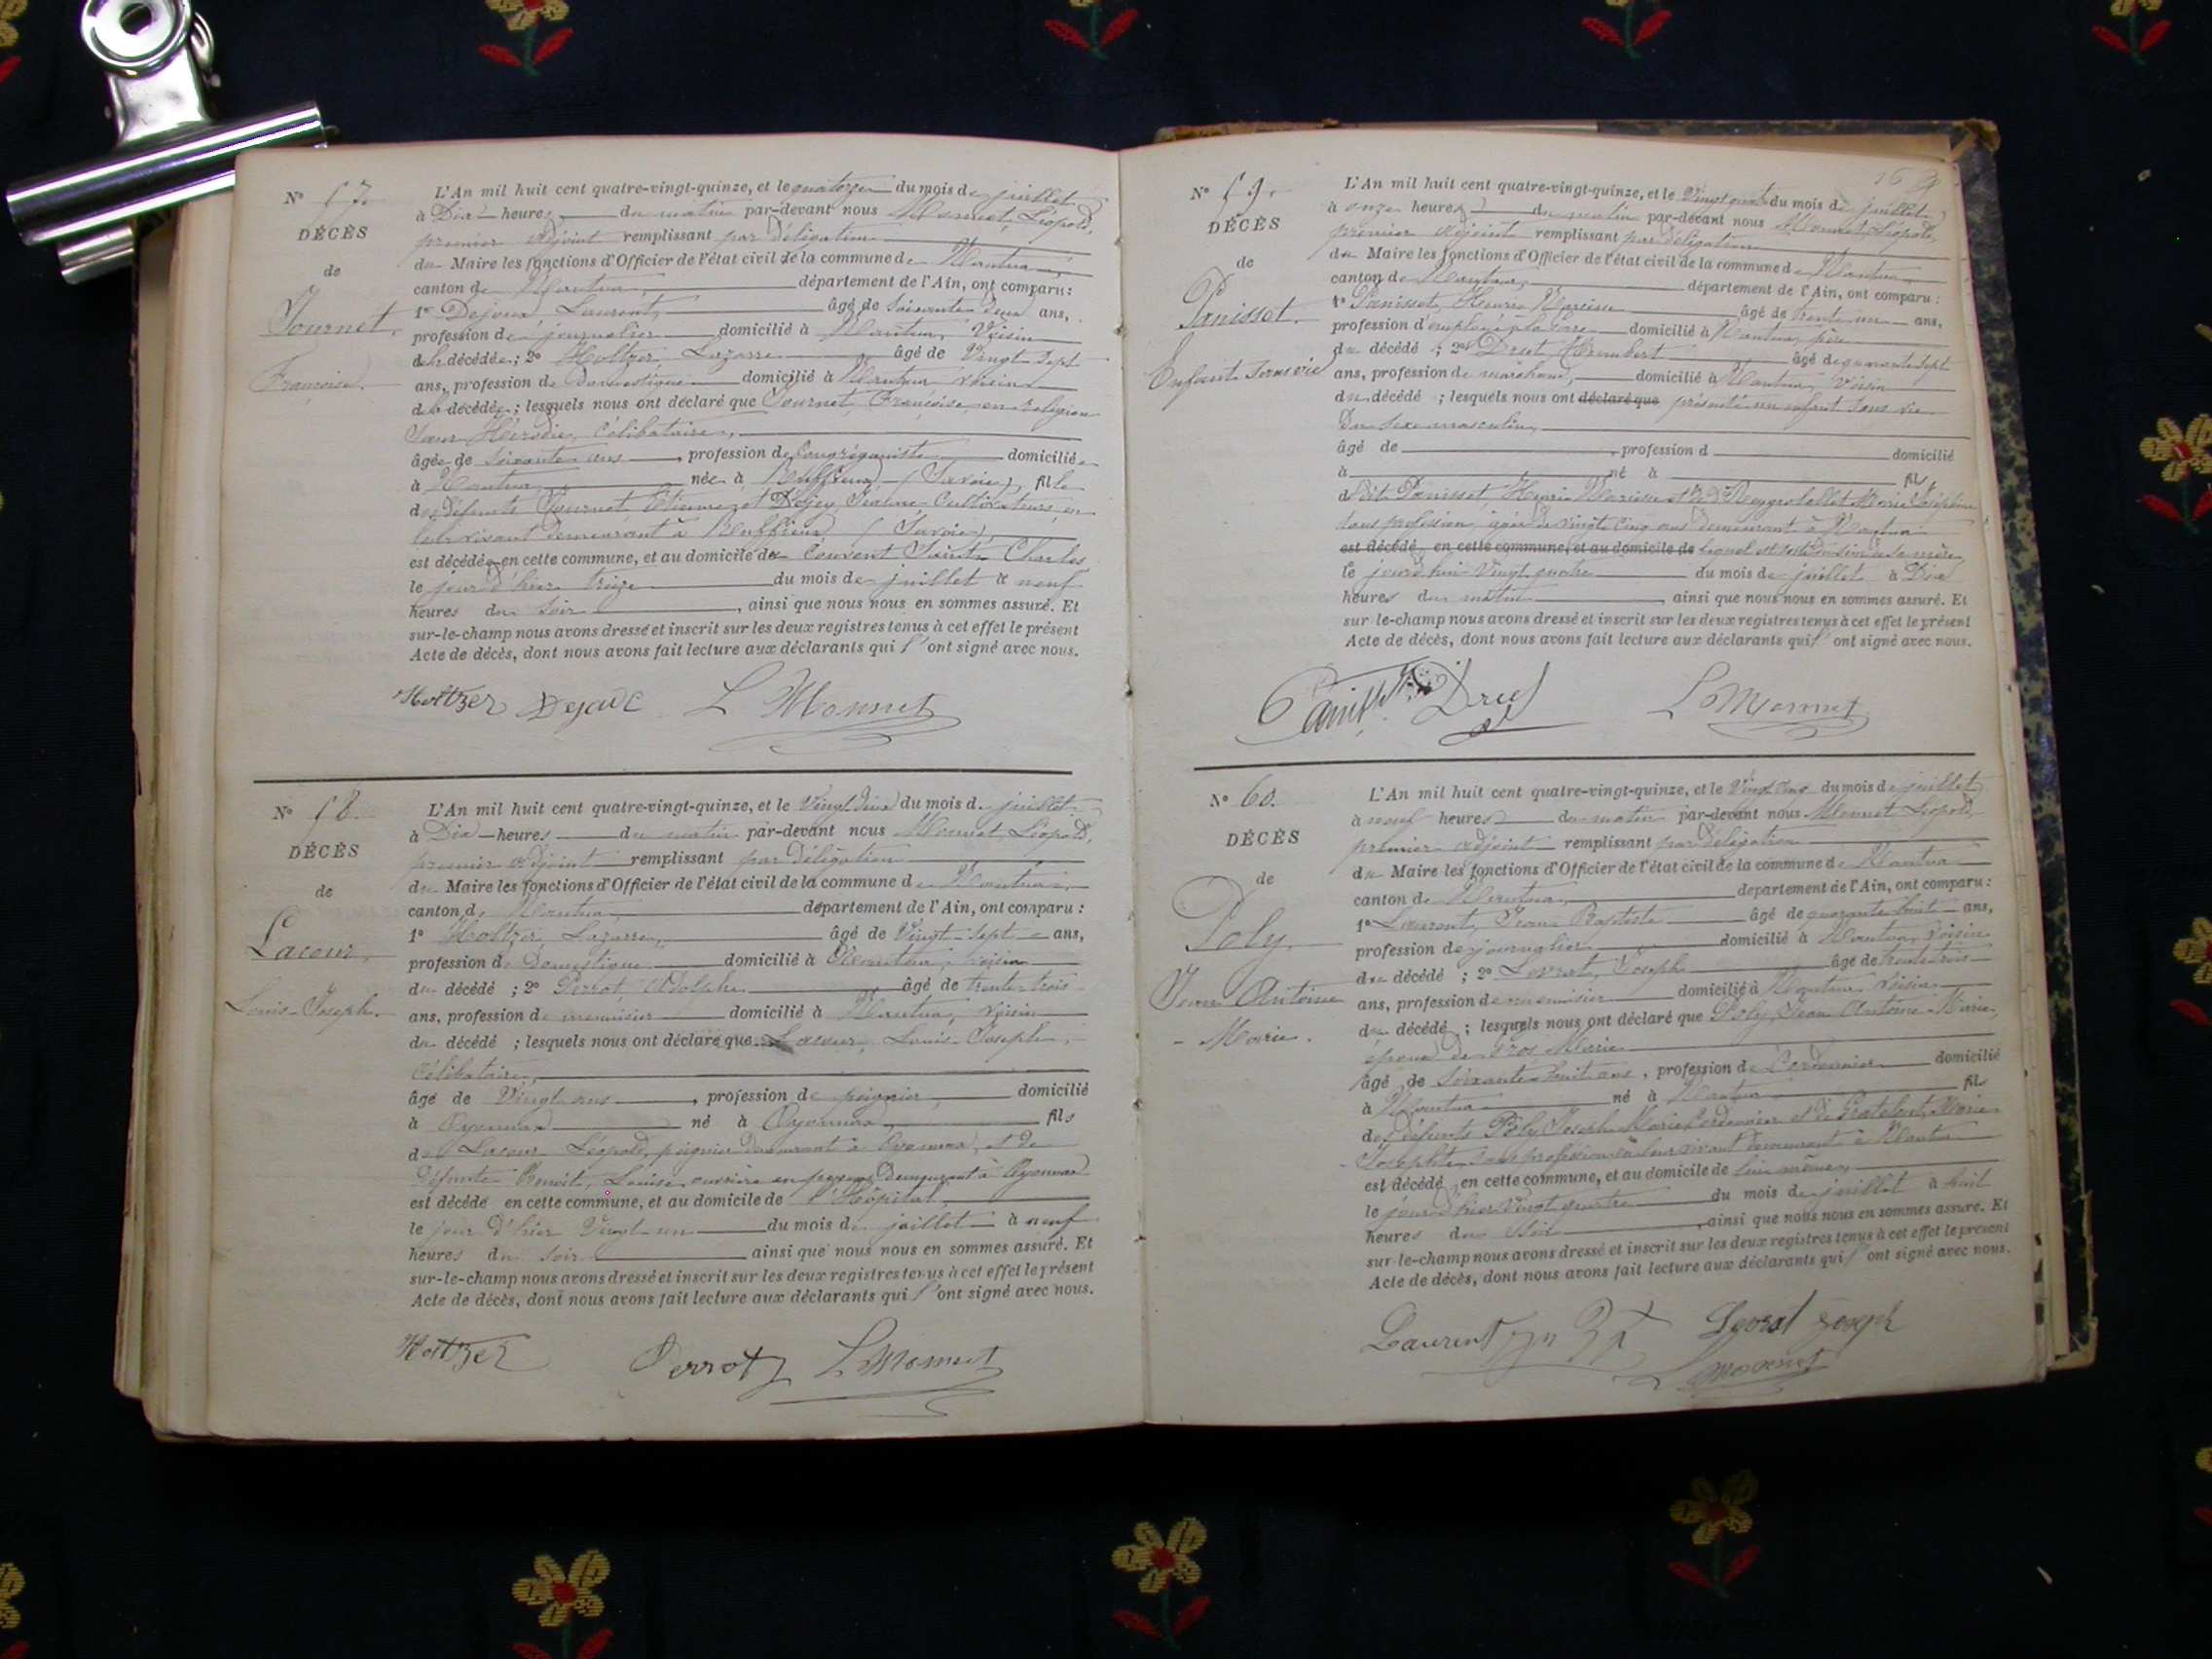 N° 57.
DÉCÈS
de
Journet,
Françoise.
L'An mil huit cent quatre-vingt-quinze, et le quatorze du mois de juillet
à Dix heures du matin par-devant nous Monnet, Léopold,
premier adjoint remplissant par délégation
du Maire les fonctions d'Officier de l'état civil de la commune de Nantua,
canton de Nantua, département de l'Ain, ont comparu :
1° Dejoux Laurent, âgé de soixante deux ans,
profession de journalier domicilié à Nantua, Voisin
de la décédée ; 2° Holtzer Lazarre âgé de Vingt sept
ans, profession de Domestique domicilié à Nantua voisin
de la décédée ; lesquels nous ont déclaré que Journet, Françoise en religion
Sœur célibataire,
âgée de soixante ans, profession de Congréganiste domiciliée
à Nantua née à Ruffieux (Savoie), fille
des défunts Journet Etienne et Jeanne Cultivateurs, en
leur vivant demeurant à Ruffieux (Savoie),
est décédée en cette commune, et au domicile du Couvent Saint Charles
le jour d'hier treize du mois de juillet à neuf
heures du soir, ainsi que nous nous en sommes assuré. Et
sur-le-champ nous avons dressé et inscrit sur les deux registres tenus à cet effet le présent
Acte de décès, dont nous avons fait lecture aux déclarants qui l'ont signé avec nous.
Holtzer Dejoux L Monnet
N° 58.
DÉCÈS
de
Lacour,
Louis-Joseph.
L'An mil huit cent quatre-vingt-quinze, et le Vingt deux du mois de juillet
à Dix heures du matin par-devant nous Monnet Léopold,
premier adjoint remplissant par délégation
du Maire les fonctions d'Officier de l'état civil de la commune de Nantua,
canton de Nantua, département de l'Ain, ont comparu :
1° Holtzer Lazarre, âgé de Vingt-sept ans,
profession de Domestique domicilié à Nantua, voisin
du décédé ; 2° Perrot, Adolphe âgé de trente-trois
ans, profession de menuisier domicilié à Nantua, voisin
du décédé ; lesquels nous ont déclaré que Lacour, Louis-Joseph,
célibataire,
âgé de Vingt ans, profession de peignier, domicilié
à Oyonnax né à Oyonnax, fils
de Lacour Léopold, peignier demeurant à Oyonnax, et de
défunte Benoit, Louise, ouvrière en peignes, demeurant à Oyonnax
est décédé en cette commune, et au domicile de l'Hôpital,
le jour d'hier Vingt un du mois de juillet à neuf
heures du soir ainsi que nous nous en sommes assuré. Et
sur-le-champ nous avons dressé et inscrit sur les deux registres tenus à cet effet le présent
Acte de décès, dont nous avons fait lecture aux déclarants qui l'ont signé avec nous.
Holtzer Perrot L Monnet
N° 59.
DÉCÈS
de
Panisset.
Enfant sans vie
L'An mil huit cent quatre-vingt-quinze, et le Vingt quatre du mois de juillet
à onze heures du matin par-devant nous Monnet, Léopold,
premier adjoint remplissant par délégation
du Maire les fonctions d'Officier de l'état civil de la commune de Nantua
canton de Nantua, département de l'Ain, ont comparu :
1° Panisset, Henri Narcisse âgé de trente un ans,
profession d'employé à la Gare domicilié à Nantua, père
du décédé ; 2° Druet, Humbert âgé de quarante sept
ans, profession de marchand, domicilié à Nantua, Voisin
du décédé ; lesquels nous ont déclaré que présenté un enfant sans vie
Du sexe masculin,
âgé de , profession d domicilié
à né à fils
dudit Panisset, Henri Narcisse et de Marie Joséphine
sans profession, âgée de vingt cinq ans demeurant à Nantua
est décédé en cette commune, et au domicile de lequel est sorti du sein de sa mère
le jourd'hui Vingt quatre du mois de juillet à Dix
heures du matin, ainsi que nous nous en sommes assuré. Et
sur-le-champ nous avons dressé et inscrit sur les deux registres tenus à cet effet le présent
Acte de décès, dont nous avons fait lecture aux déclarants qui l'ont signé avec nous.
Panisset Druet L Monnet
N° 60.
DÉCÈS
de
Poly,
Jean Antoine
- Marie.
L'An mil huit cent quatre-vingt-quinze, et le Vingt cinq du mois de juillet
à neuf heures du matin par-devant nous Monnet Léopold,
premier adjoint remplissant par délégation
du Maire les fonctions d'Officier de l'état civil de la commune de Nantua
canton de Nantua, département de l'Ain, ont comparu :
1° Laurent, Jean Baptiste âgé de quarante huit ans,
profession de journalier domicilié à Nantua, voisin
du décédé ; 2° Levrat, Joseph âgé de trente trois
ans, profession de menuisier domicilié à Nantua, voisin
du décédé ; lesquels nous ont déclaré que Poly, Jean Antoine-Marie,
époux de Gros Marie
âgé de soixante huit ans, profession de Cordonnier domicilié
à Nantua né à Nantua fils
des défunts Poly Joseph Marie Cordonnier et de Marie
Josephte sans profession en leur vivant demeurant à Nantua
est décédé en cette commune, et au domicile de lui même,
le jour d'hier Vingt quatre du mois de juillet à huit
heures du soir, ainsi que nous nous en sommes assuré. Et
sur-le-champ nous avons dressé et inscrit sur les deux registres tenus à cet effet le présent
Acte de décès, dont nous avons fait lecture aux déclarants qui l'ont signé avec nous.
Laurent Levrat Joseph
L Monnet